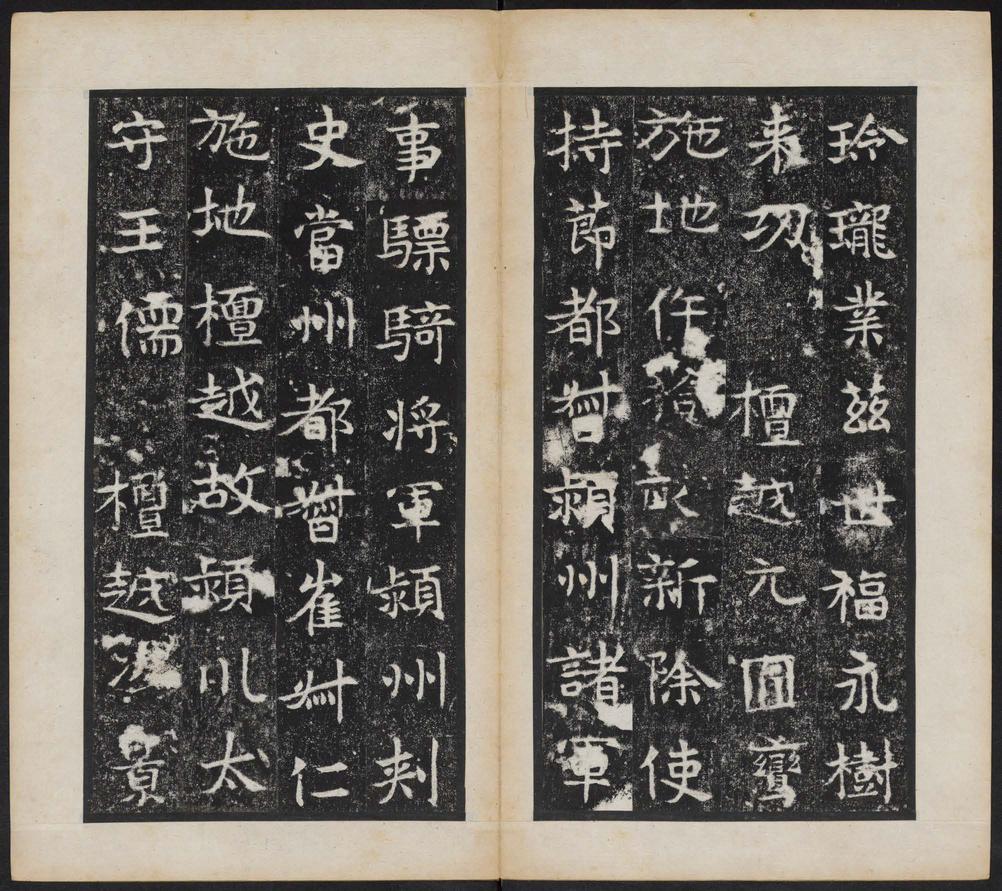 玲瓏業茲世福永樹
来功 檀越元圓鸞
施地仵拾畝新除使
持節都督潁州諸軍
事驃騎将軍潁州刾
史當州都督崔叔仁
施地檀越故潁川太
守王儒 檀越貴